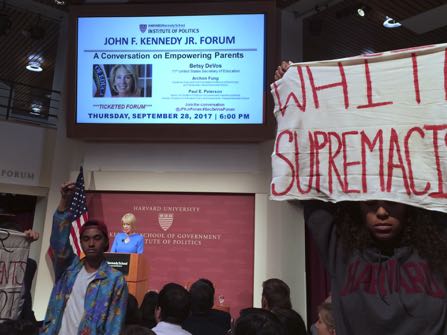 HARVARD Kennedy School
INSTITUTE OF POLITICS
JOHN F. KENNEDY JR. FORUM
A Conversation on Empowering Parents
Betsy DeVos
United States Secretary of Education
Archon Fung
Paul E. Peterson
***TICKETED FORUM***
Join the conversation
THURSDAY, SEPTEMBER 28, 2017 | 6:00 PM
WHIT
SUPREMACIS
FORUM
HARVARD UNIVERSITY
SCHOOL OF GOVERNMENT
INSTITUTE OF POLITICS
ENTS
HARVARD